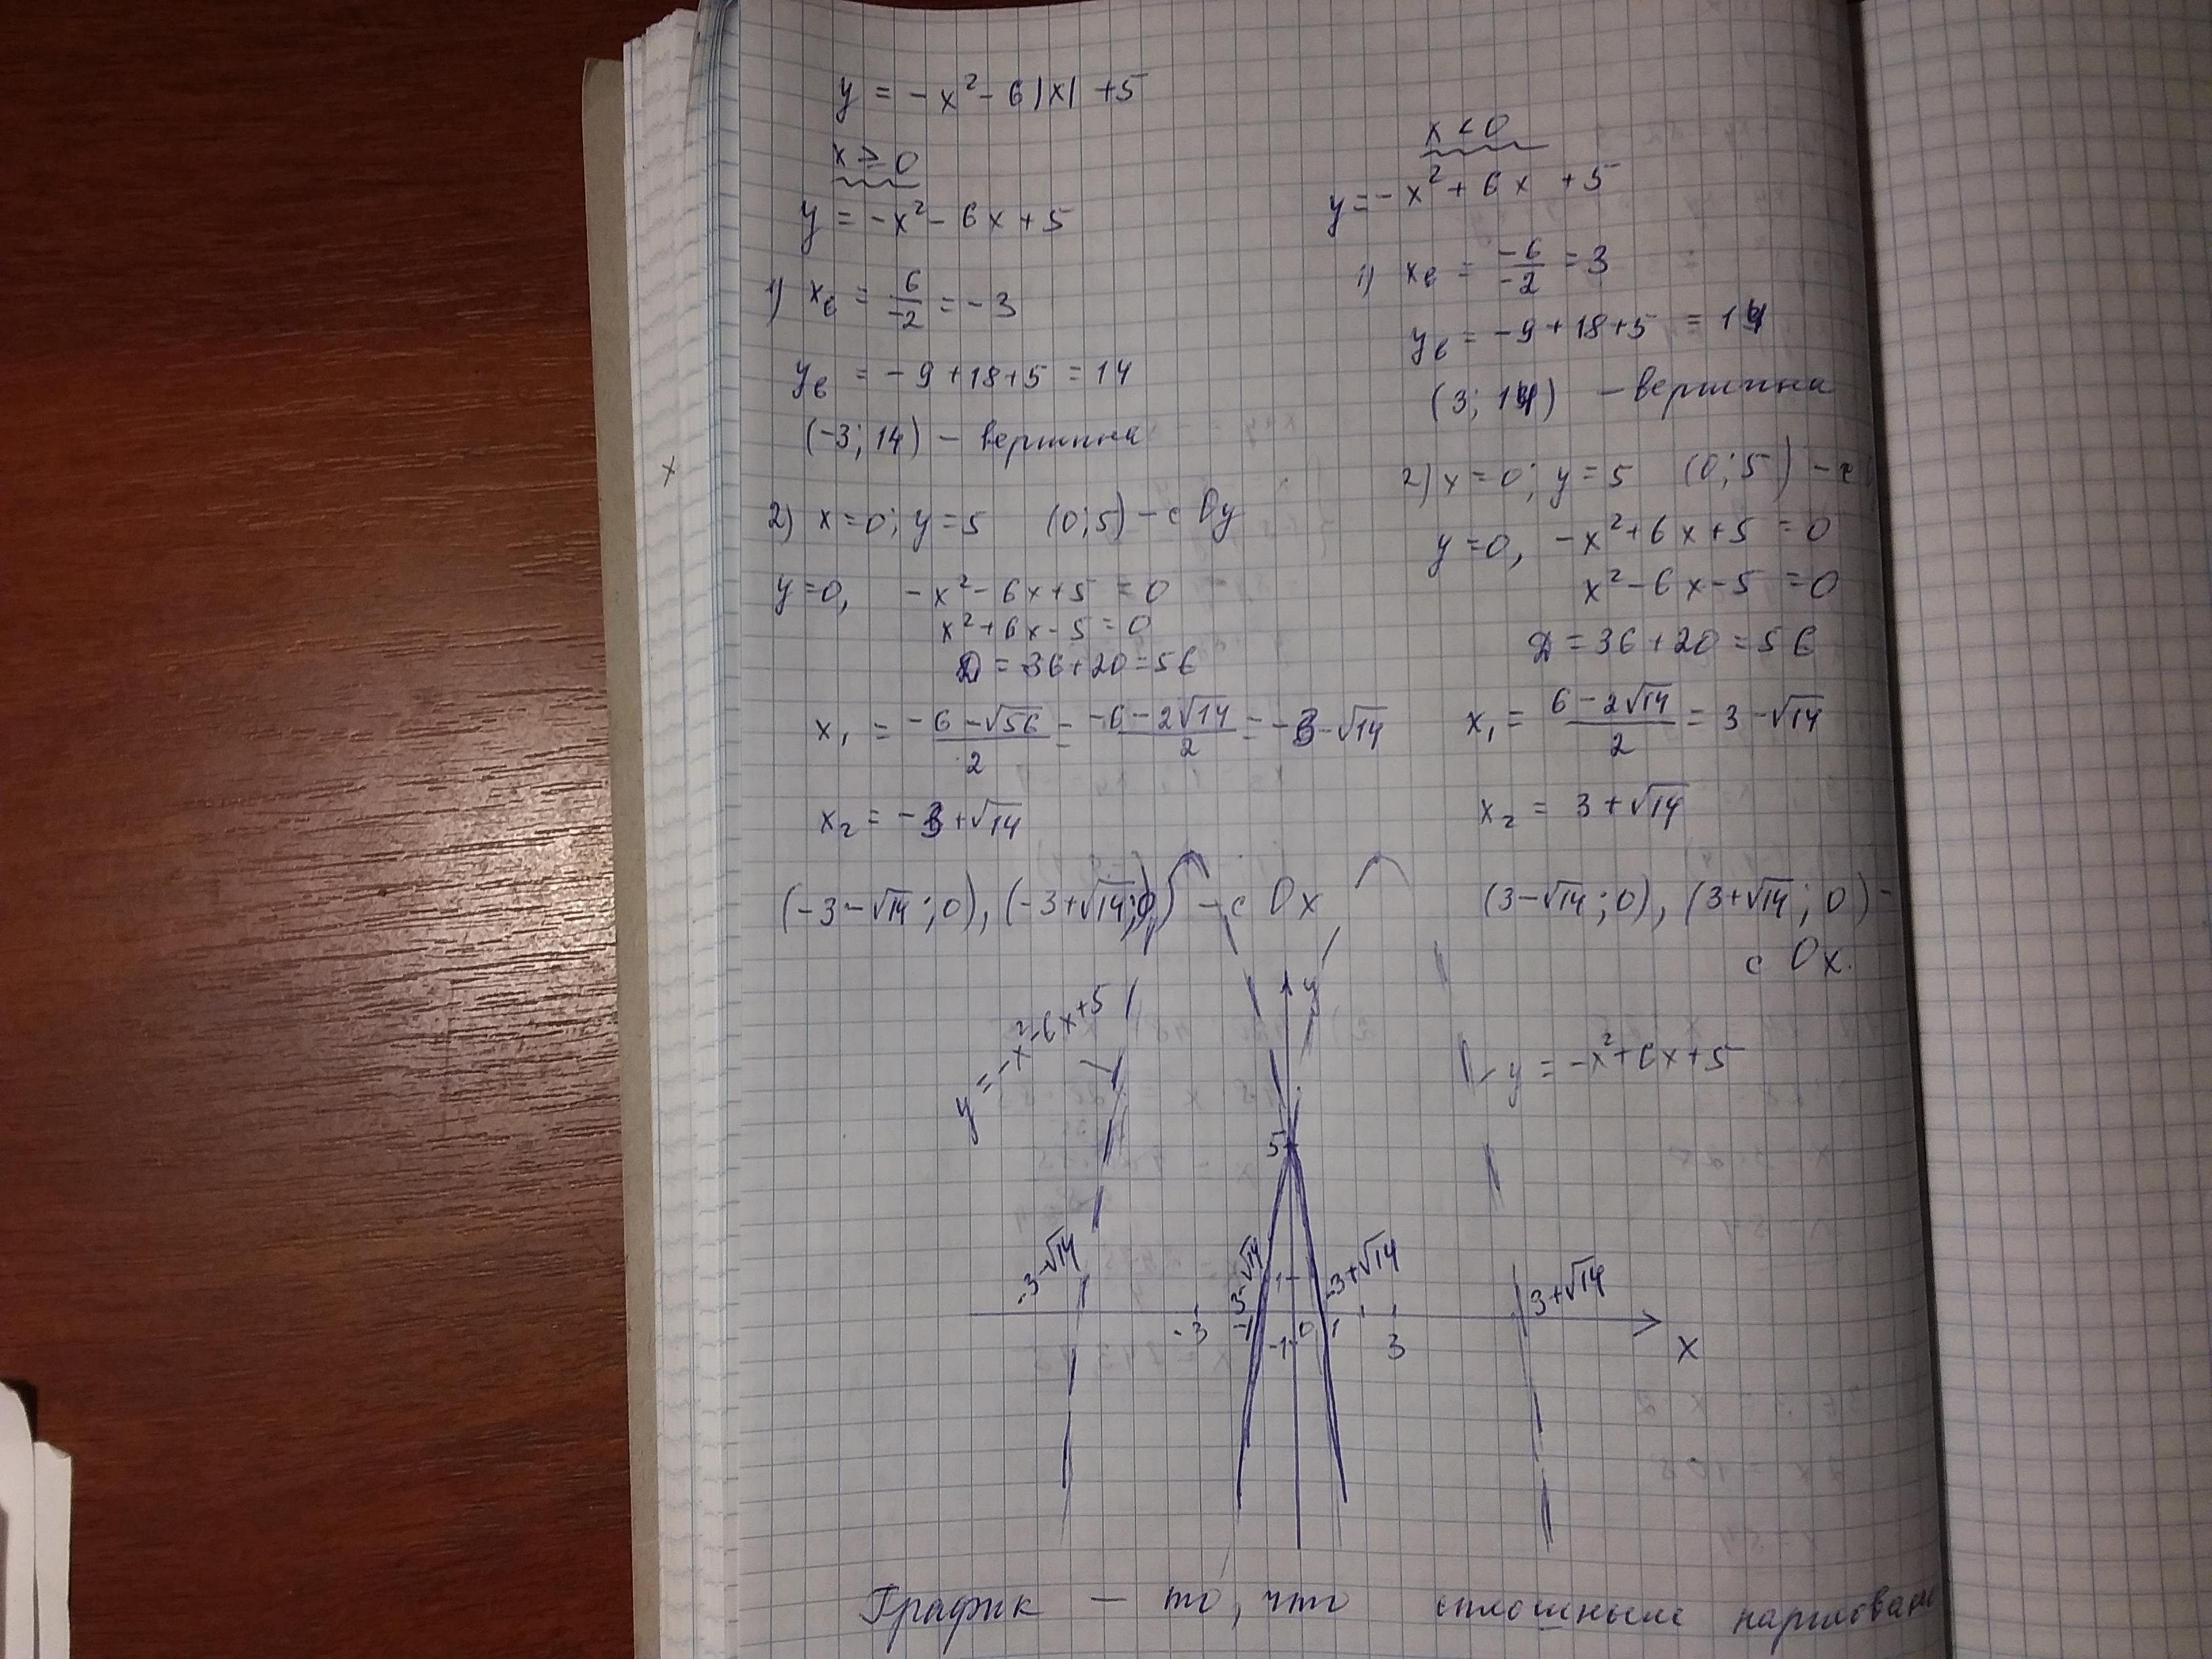 y = -x² - 6|x| + 5
x ≥ 0
y = -x² - 6x + 5
1) xв = 6/-2 = -3
yв = -9+18+5 = 14
(-3; 14) - вершина
2) x=0; y=5 (0;5) - с Oy
y=0, -x² - 6x + 5 = 0
x² + 6x - 5 = 0
D = 36+20 = 56
x₁ = (-6 - √56)/2 = (-6 - 2√14)/2 = -3 - √14
x₂ = -3 + √14
(-3-√14; 0), (-3+√14; 0) - с Ox
x < 0
y = -x² + 6x + 5
1) xв = -6/-2 = 3
yв = -9+18+5 = 14
(3; 14) - вершина
2) x=0; y=5 (0;5) - с
y=0, -x² + 6x + 5 = 0
x² - 6x - 5 = 0
D = 36+20 = 56
x₁ = (6 - 2√14)/2 = 3 - √14
x₂ = 3 + √14
(3-√14; 0), (3+√14; 0) -
с Ox.
y
y = -x² - 6x + 5
y = -x² + 6x + 5
5
-3-√14
3-√14
1
-3+√14
3+√14
-3
-1
0
1
3
-1
x
График - то, что сплошным нарисован